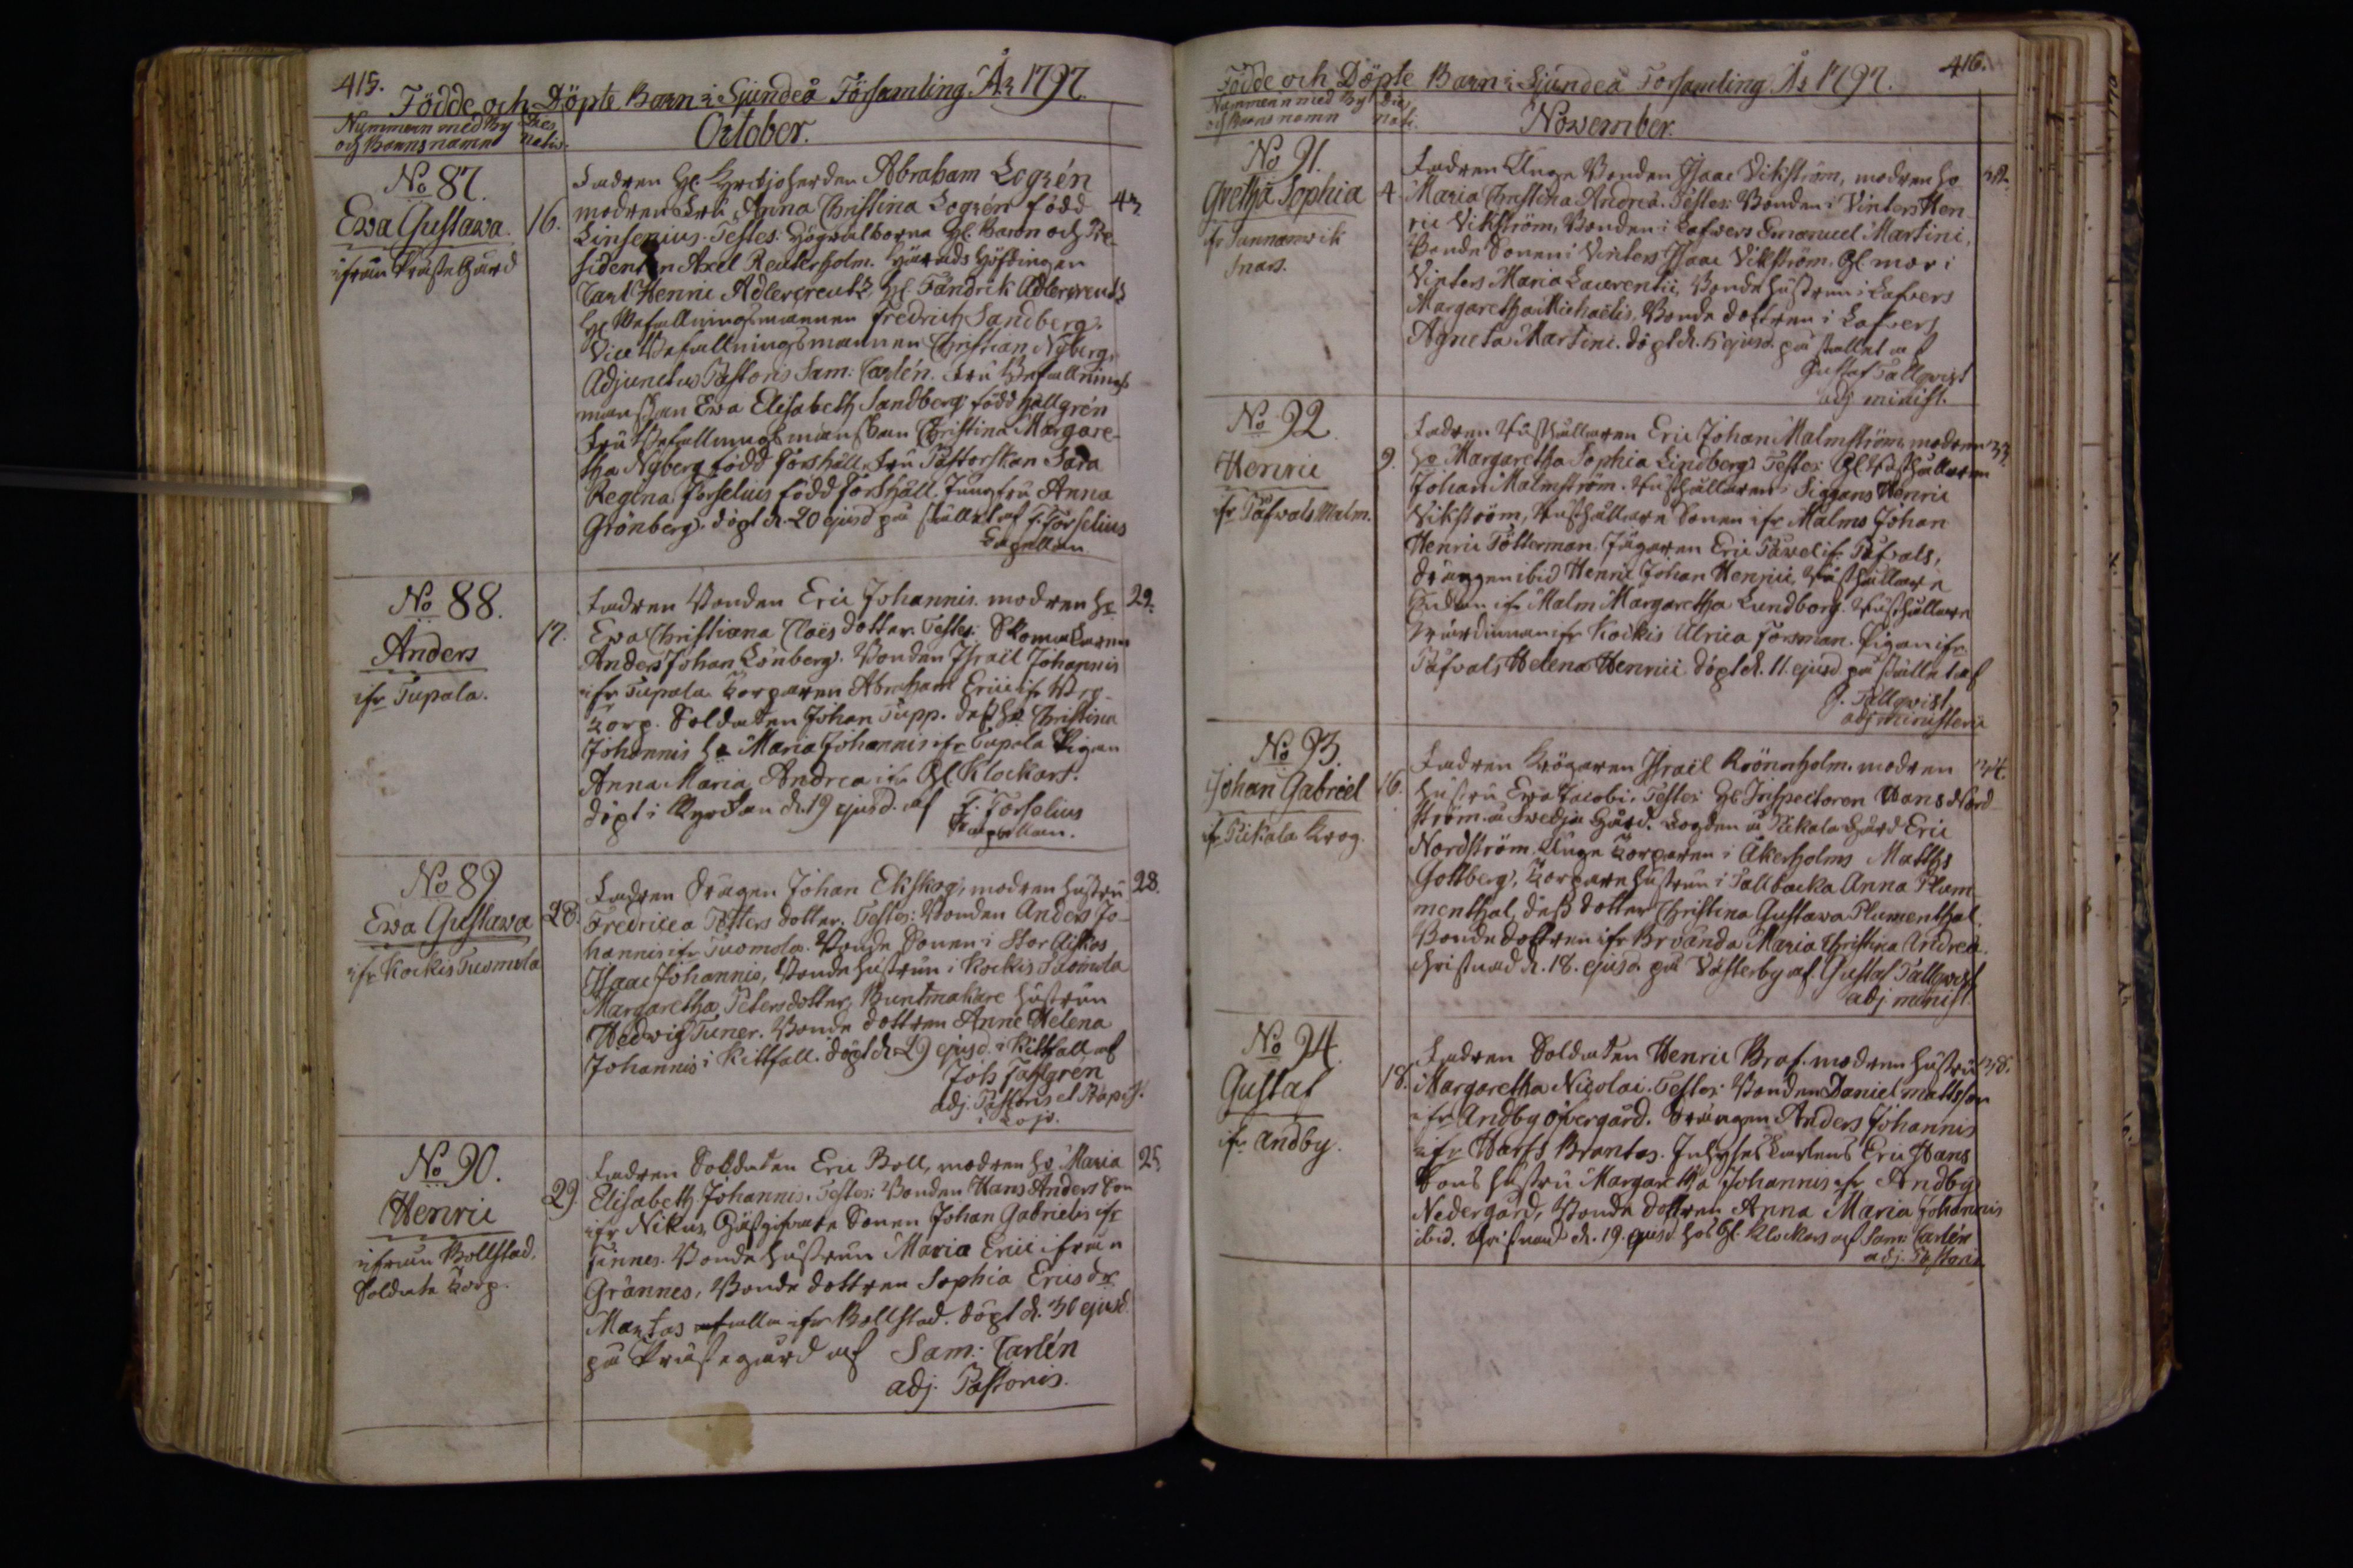 415.
Födde och Döpte Barn i Sjundeå Församling År 1797.
Nummern med By
och Barnsnamn
Dies
nativ.
October.
No 87.
Ewa Gustawa.
ifrån Prästegård
16.
43
Fadren Hl. Kyrckjoherden Abraham Logrén
modren Fru Anna Christina Logrén född
Linsenius. Testes: Högvälborna Hl. Baron och Pre-
sidenten Axel Reuterholm. Härads Höfdingen
Carl Henric Adlercreutz Hl. Fändrik Adlercreutz
Hl. Befallningsmannen Fredrich Sandberg.
Vice Befallningsmannen Christian Nyberg.
Adjunctus Pastoris Sam: Carlén. Fru Befallnings
manskan Ewa Elisabeth Sandberg född Hallgrén
Fru Befallningsmanskan Christina Margare-
tha Nyberg född Forshäll. Fru Pastorskan Sara
Regina Forselius född Forshäll. Jungfru Anna
Grönberg. döpt d. 20 ejusd på stället af F. Forselius
Capellan
No 88.
Anders
ifr Tupala.
17.
29.
Fadren Bonden Eric Johannis. modren H:
Ewa Christiana Claës dotter. Testes: Skomakaren
Anders Johan Lönberg. Bonden Israël Johannis
ifr Tupala. Torparen Abraham Erici ifr
Torp. Soldaten Johan Tupp. dess H: Christina
Johannis H: Maria Johannis ifr Tupala Pigan
Anna Maria Andreæ ifr Gl. Klockars.
döpt i Kyrkan d. 19 ejusd. af F. Forselius
Capellan.
No 89
Ewa Gustawa
ifr Kockis Tuomola
28.
28.
Fadren Drängen Johan Ekskog, modren Hustru
Fredrica Petters dotter. Testes: Bonden Anders Jo-
hannis ifr Tuomola. Bonde Sonen i Stor
Isaac Johannis, Bonde hustrun i Kockis Tuomola
Margaretha Petersdotter, Buntmakare hustrun
Hedwig Tuner. Bonde dottren Anne Helena
Johannis i Kittfall. döpt d. 29 ejusd. i Kittfall af
Joh Tahlgren
adj. Pastoris
i Lojo.
No 90.
Henric
ifrån Bollstad.
Soldate Torp.
29.
25.
Fadren Soldaten Eric Boll, modren H: Maria
Elisabeth Johannis. Testes: Bonden Hans Anders Son
ifr Nikus, Gästgifvare Sonen Johan Gabrielis ifr
Finnes. Bonde hustrun Maria Erici ifrån
Grännes, Bonde dottren Sophia Ericsdr
Martas alla ifr Bollstad. döpt d. 30 ejusd.
på Prästegård af Sam: Carlén
adj. Pastoris.
416.
Födde och Döpte Barn i Sjundeå Församling År 1797.
Nummern med By
och Barns namn
Die
nati.
November.
No 91.
Gretha Sophia
ifr Sunnanvik
Inars.
4.
32.
Fadren Unge Bonden Isaac Vikström, modren H:
Maria Christina Andreæ. Testes: Bonden i Vinters Hen-
ric Vikström, Bonden i Lafvers Emanuel Martini,
Bonde Sonen i Vinters Isaac Vikström. Gl. mor i
Vinters Maria Laurentii, Bonde hustrun i Lafvers
Margaretha Michaëlis, Bonde dottren i Lafvers
Agneta Martini. döpt d. 5 ejusd. på stället af
Gustaf Tallqvist
adj minist.
No 92.
Henric
ifr Päfvals Malm.
9.
33.
Fadren Rusthållaren Eric Johan Malmström, modren
H: Margaretha Sophia Lindberg. Testes: Gl. Rusthållaren
Johan Malmström. Rusthållaren i Siggans Henric
Vikström, Rusthållare Sonen ifr Malms Johan
Henric Tötterman. Jägaren Eric Pavel ifr Päfvals,
drängen ibid Henric Johan Henrici, Rusthållare
ifr Malm Margaretha Lundborg. Rusthållare
Wärdinnan ifr Kockis Ulrica Forsman. Pigan ifr
Päfvals Helena Henrici döpt d. 11. ejusd. på stället af
G. Tallqvist
adj ministerii
No 93.
Johan Gabriel
ifr Pikala Krog.
16.
34.
Fadren Krögaren Israël Krönnholm. modren
hustru Ewa Jacobi. Testes: Hl. Inspectoren Hans Nord-
ström å Swedja Gård. Fogden å Pikala Gård Eric
Nordström. Unge Torparen i Åkerholms Matths
Gottberg, Torpare hustrun i Tallbacka Anna Plum-
menthal, dess dotter Christina Gustawa Plumenthal.
Bonde dottren ifr Brvända Maria Christina Andreæ.
Christnad d. 18. ejusd. på Västerby af Gustaf Tallqvist
adj. minist.
No 94.
Gustaf
ifr Andby.
18.
38.
Fadren Soldaten Henric Braf. modren hustru
Margaretha Nicolai. Testes: Bonden Daniel Mattsson
ifr Andby öfvergård. Drängen Anders Johannis
ifr Harfs Brantas. Inhyses Karlens Eric Hans
Sons hustru Margaretha Johannis ifr Andby
Nedergård, Bonde dottren Anna Maria Johannis
ibid. Christnad d. 19. ejusd. hos Gl. Klockars af Sam: Carlén
adj. Pastoris